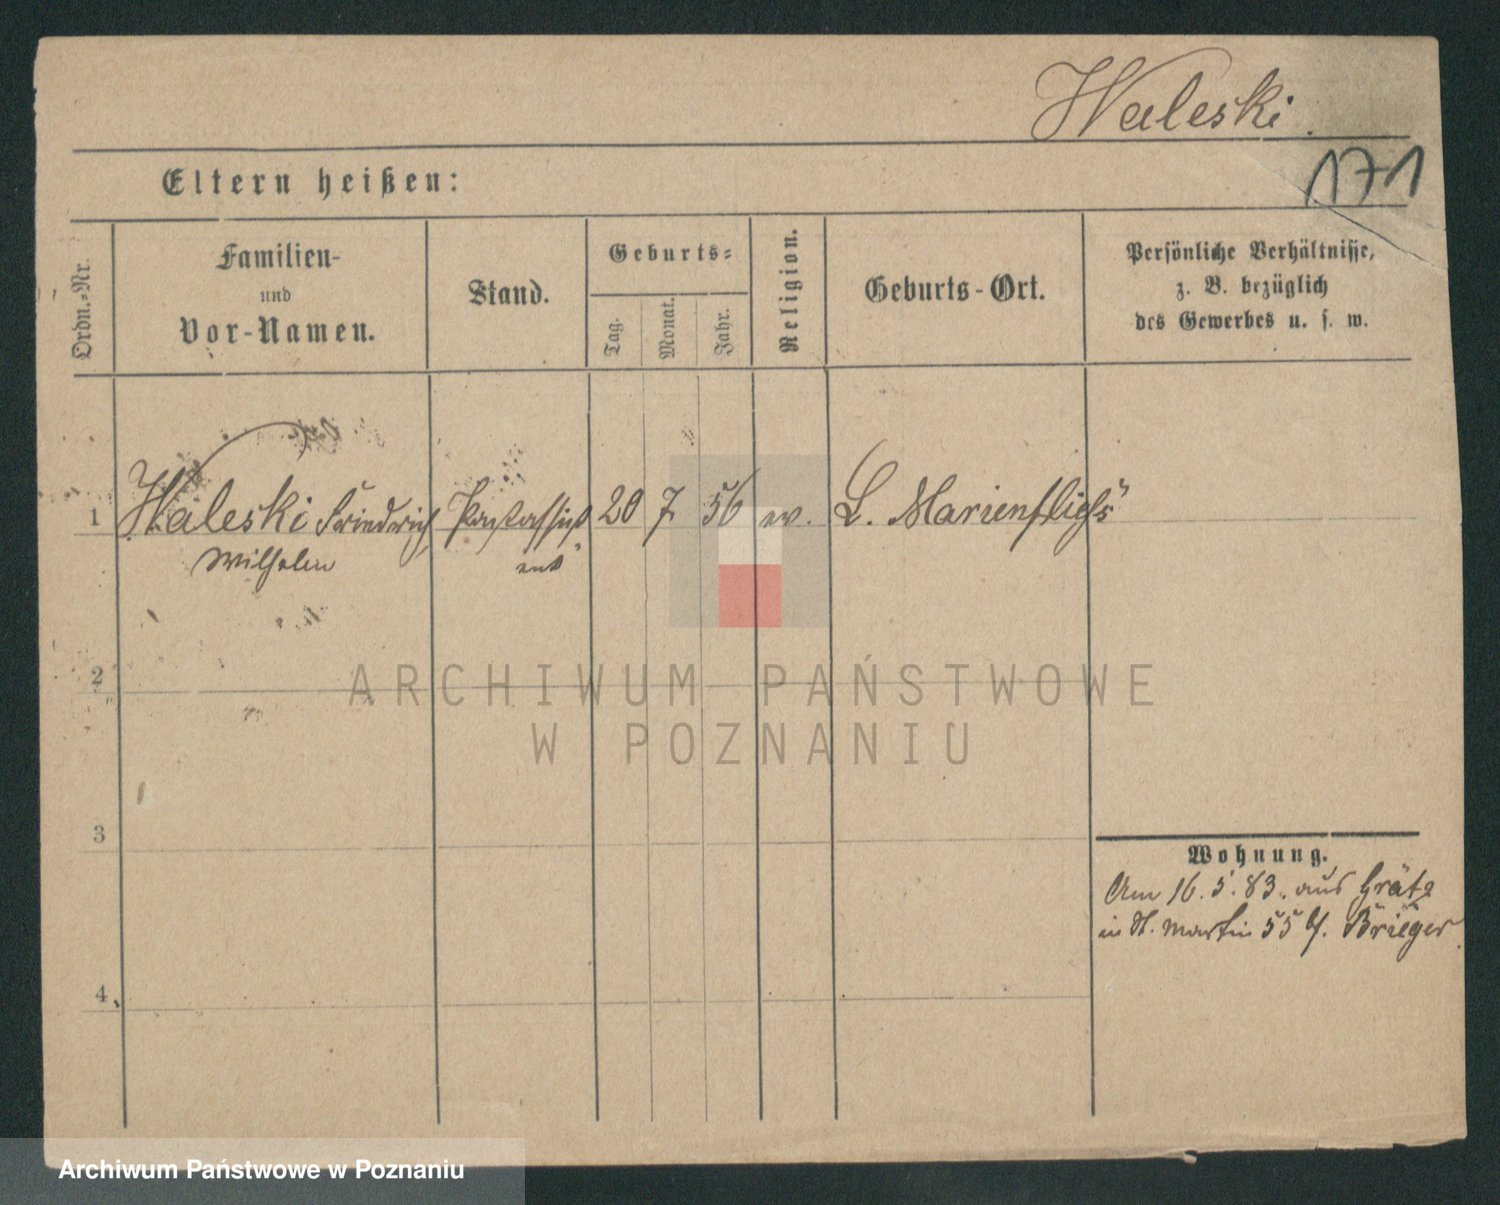 Waleski
171
Eltern heißen:
Ordn.-Nr.
Familien-
und
Vor-Namen.
Stand.
Geburts-
Tag.
Monat.
Jahr.
Religion.
Geburts-Ort.
Persönliche Verhältnisse,
z. B. bezüglich
des Gewerbes u. s. w.
1 Waleski Friedrich Postassist 20 7 56 ev. L. Marienfließ
Wilhelm ent
2
ARCHIWUM PAŃSTWOWE
W POZNANIU
3
Wohnung.
Am 16.5.83. aus Grätz
in St. Martin 55 b/. Brieger
4
Archiwum Państwowe w Poznaniu